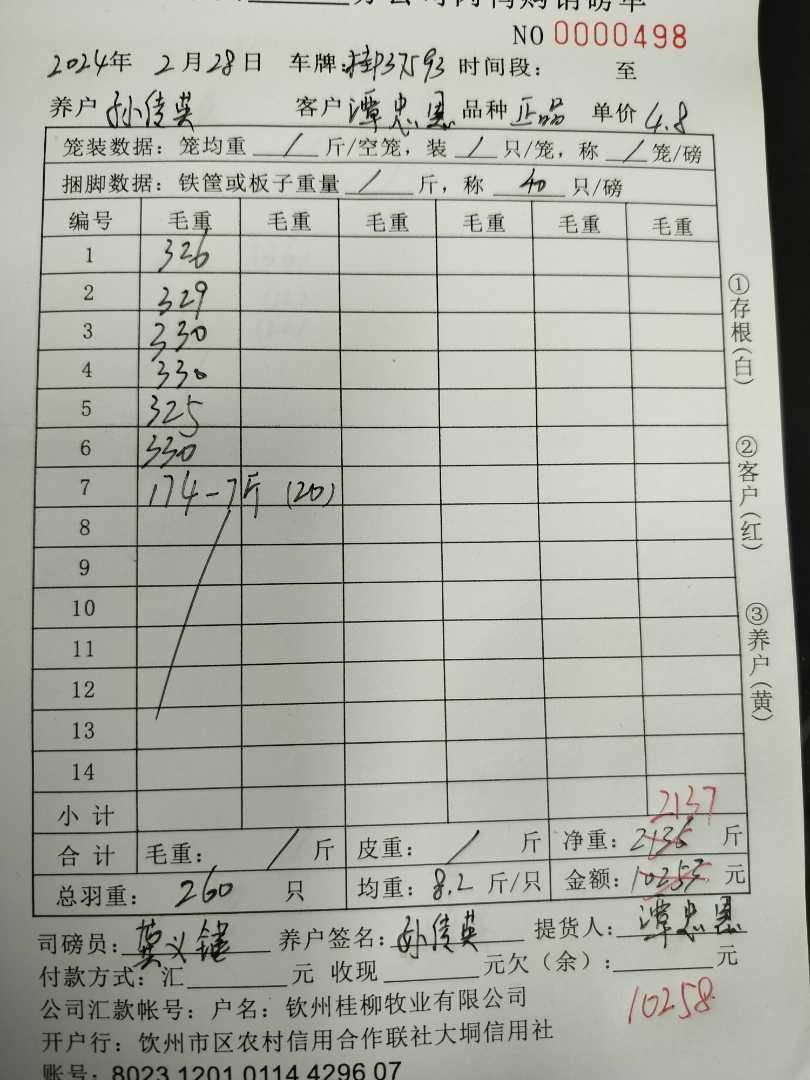 NO 0000498
2024年 2月28日 车牌:桂 37593 时间段: 至
养户 孙传英 客户 潭忠恩 品种 正品 单价 4.8
笼装数据: 笼均重 / 斤/空笼, 装 / 只/笼, 称 / 笼/磅
捆脚数据: 铁筐或板子重量 / 斤, 称 40 只/磅
编号 毛重 毛重 毛重 毛重 毛重 毛重
1 326
2 329
3 330
4 330
5 325
6 330
7 174-7斤 (20)
8
9
10
11
12
13
14
小计 2137
合计 毛重: / 斤 皮重: / 斤 净重: 2136 斤
总羽重: 260 只 均重: 8.2 斤/只 金额: 10253 元
司磅员: 莫义键 养户签名: 孙传英 提货人: 潭忠恩
付款方式: 汇 元 收现 元欠(余): 元
公司汇款帐号: 户名: 钦州桂柳牧业有限公司
10258
开户行: 钦州市区农村信用合作联社大垌信用社
账号: 8023 1201 0114 4296 07
①存根(白)
②客户(红)
③养户(黄)